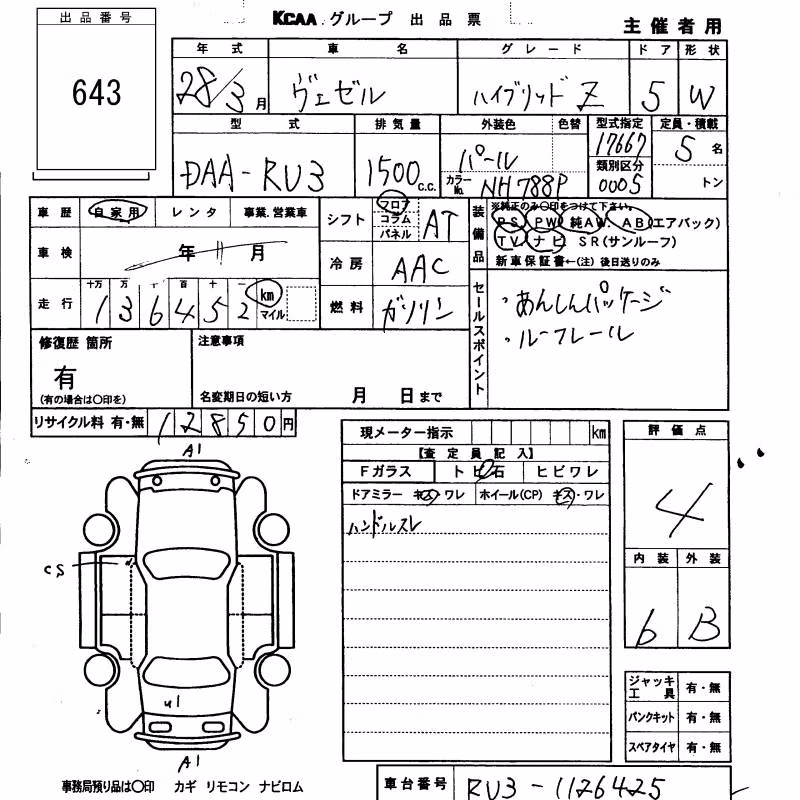 出品番号
643
KCAA グループ 出品票
主催者用
年式 車名 グレード ドア 形状
28/3月 ヴェゼル ハイブリッド Z 5 W
型式 排気量 外装色 色替 型式指定 定員・積載
DAA-RU3 1500 c.c. パール 17667 5名
カラーNo. NH788P 類別区分 0005 トン
車歴 自家用 レンタ 事業.営業車
シフト フロア コラム パネル AT
装備品 ※純正のみ〇印をつけて下さい。
PS PW 純AW. AB(エアバック)
TV. ナビ SR(サンルーフ)
新車保証書←(注) 後日送りのみ
車検 年 11月
冷房 AAC
走行 十万 万 千 百 十 一
136452 km マイル
燃料 ガソリン
セールスポイント
・あんしんパッケージ
・ルーフレール
修復歴 箇所
有
(有の場合は〇印を)
注意事項
名変期日の短い方 月 日まで
リサイクル料 有・無 12850円
現メーター指示 km
【査定員記入】
Fガラス トビ石 ヒビワレ
ドアミラー キズ・ワレ ホイール(CP) キズ・ワレ
ハンドルスレ
評価点
4
内装 外装
6 B
A1
cs
u1
A1
ジャッキ工具 有・無
パンクキット 有・無
スペアタイヤ 有・無
事務局預り品は〇印 カギ リモコン ナビロム
車台番号 RU3-1126425